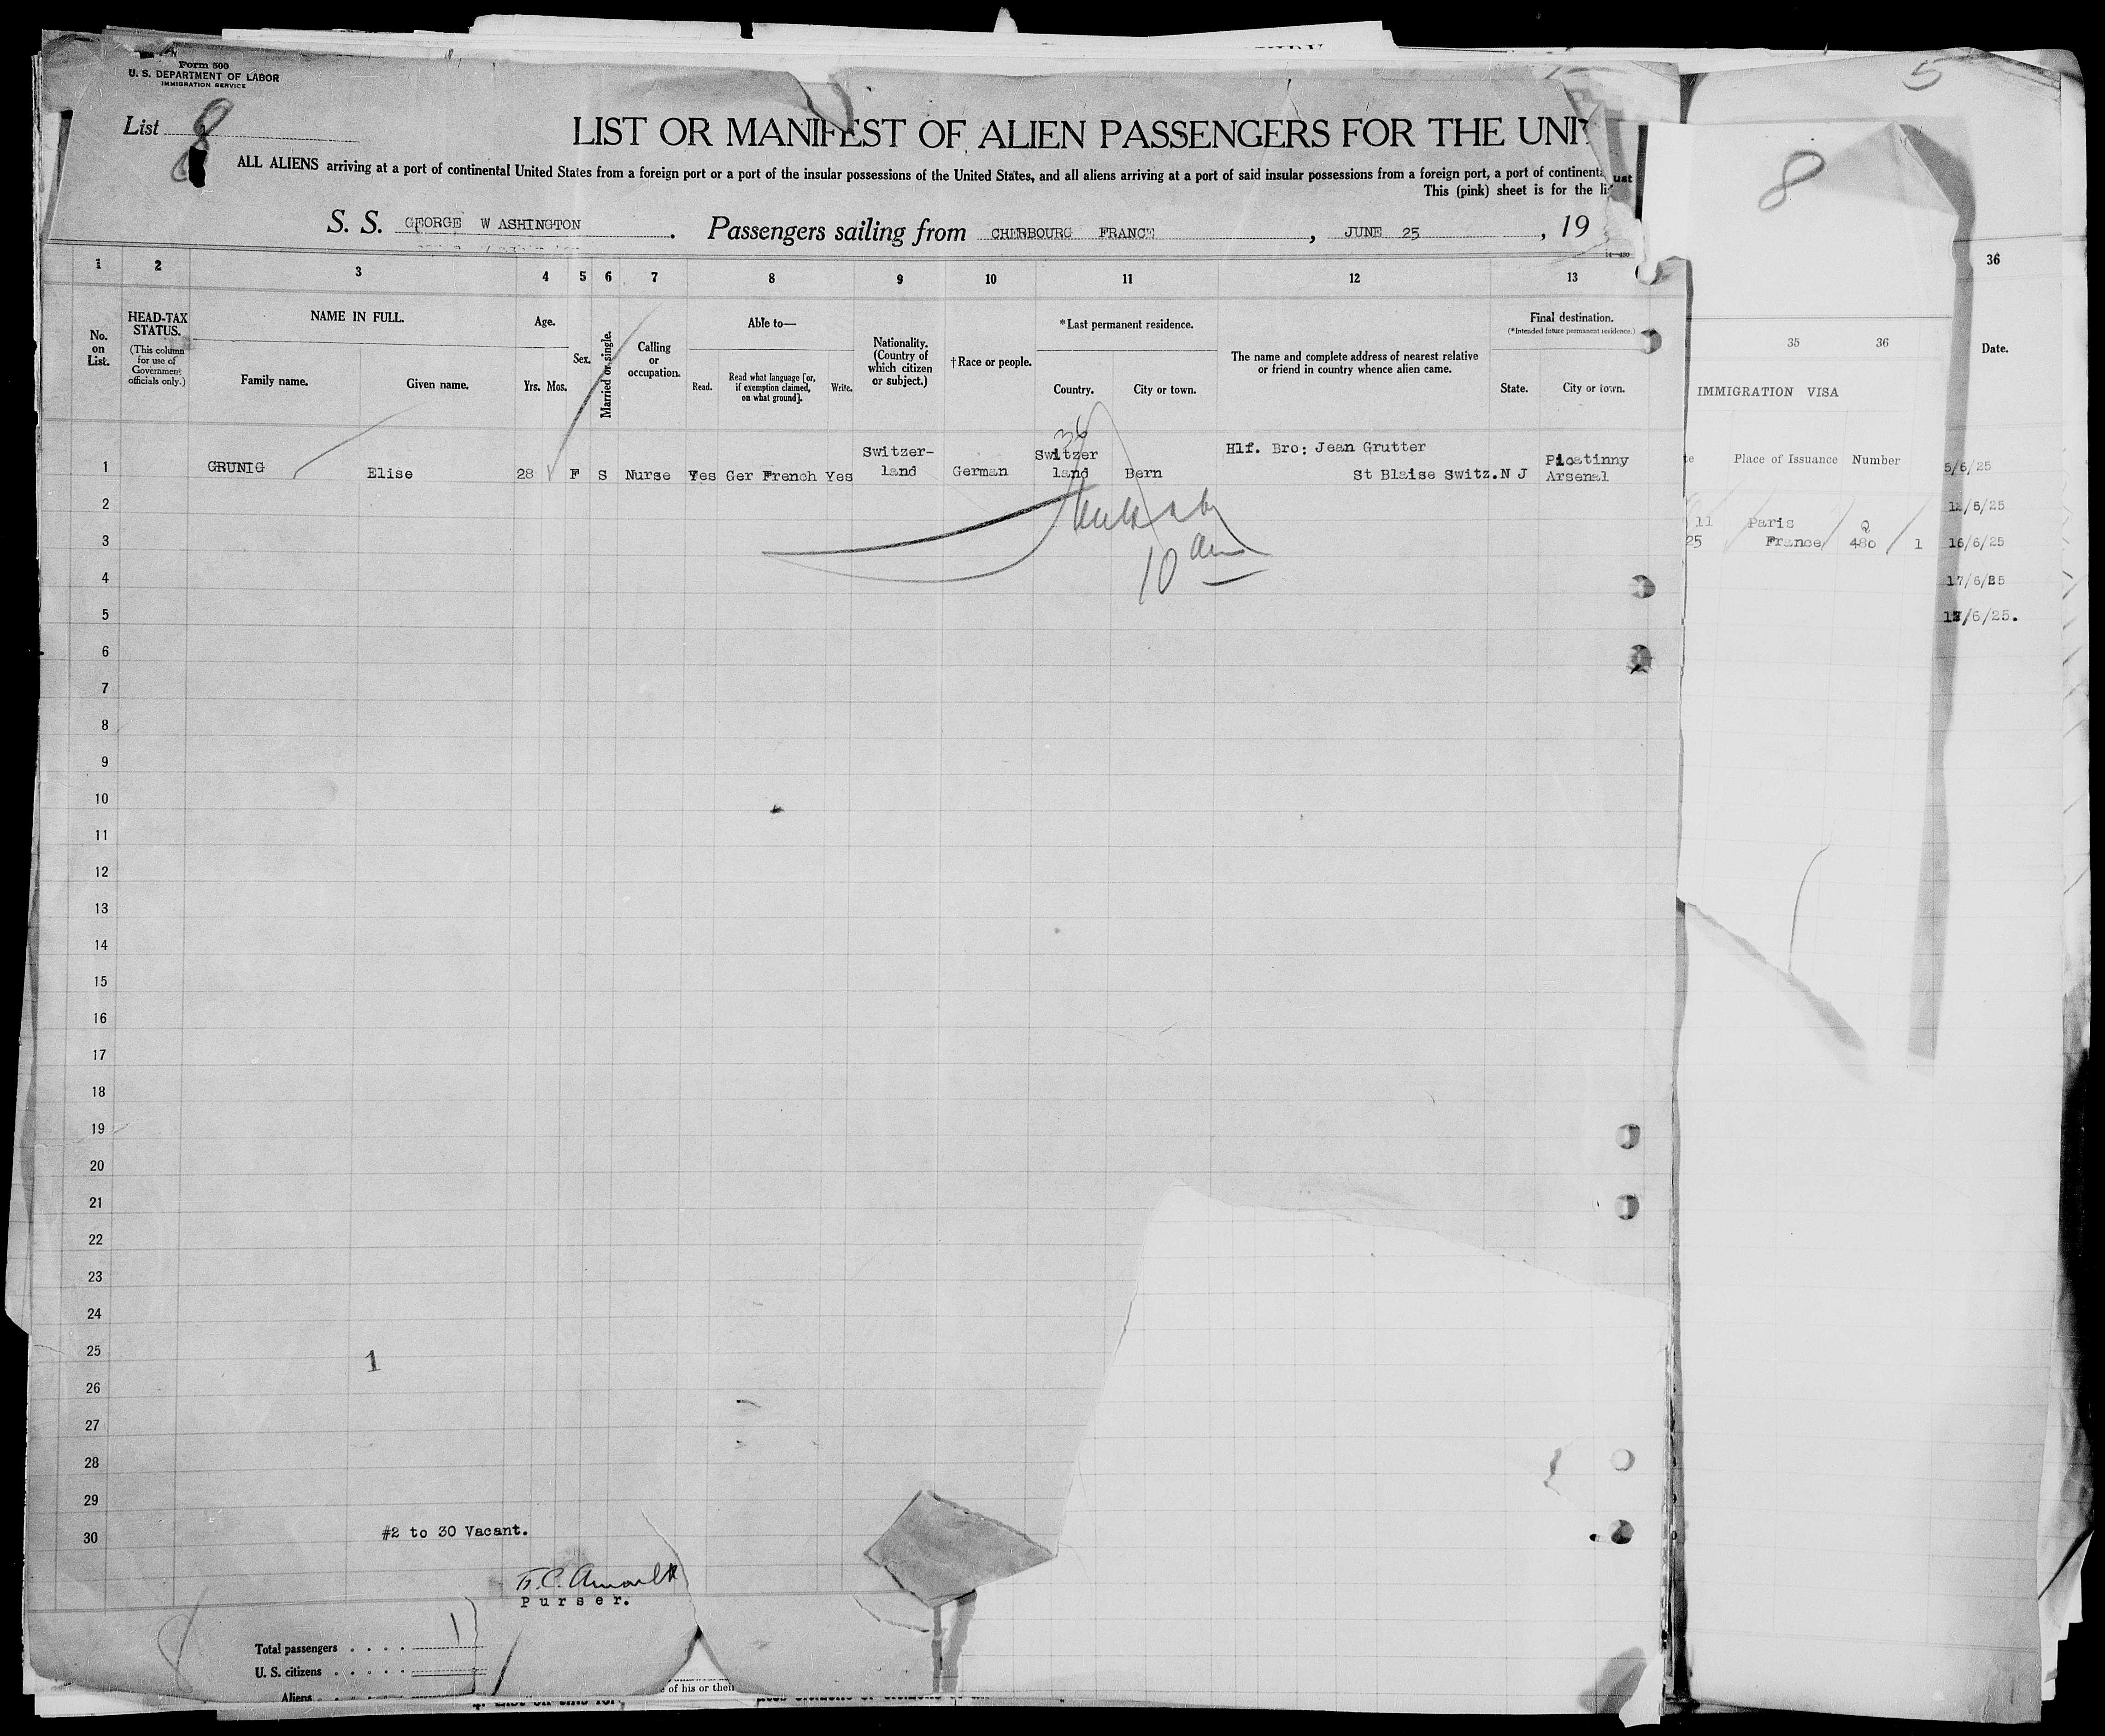 Form 500
U. S. DEPARTMENT OF LABOR
IMMIGRATION SERVICE
List 8
LIST OR MANIFEST OF ALIEN PASSENGERS FOR THE UNI
ALL ALIENS arriving at a port of continental United States from a foreign port or a port of the insular possessions of the United States, and all aliens arriving at a port of said insular possessions from a foreign port, a port of continent
This (pink) sheet is for the li
S. S. GEORGE W ASHINGTON. Passengers sailing from CHERBOURG FRANCE, JUNE 25, 19
1 2 3 4 5 6 7 8 9 10 11 12 13
No. on List.
HEAD-TAX STATUS.
(This column for use of Government officials only.)
NAME IN FULL.
Family name. Given name.
Age.
Yrs. Mos.
Sex.
Married or single.
Calling or occupation.
Able to—
Read. Read what language [or, if exemption claimed, on what ground]. Write.
Nationality. (Country of which citizen or subject.)
†Race or people.
*Last permanent residence.
Country. City or town.
The name and complete address of nearest relative or friend in country whence alien came.
Final destination.
(*Intended future permanent residence.)
State. City or town.
1 GRUNIG Elise 28 F S Nurse Yes Ger French Yes Switzer-land German Switzer land Bern Hlf. Bro: Jean Grutter St Blaise Switz. N J Picatinny Arsenal
2
3
10 am
4
5
6
7
8
9
10
11
12
13
14
15
16
17
18
19
20
21
22
23
24
25
1
26
27
28
29
30
#2 to 30 Vacant.
Purser.
Total passengers 1
U. S. citizens
Aliens
of his or thei
5
8
36
35 36
Date.
IMMIGRATION VISA
Place of Issuance Number
5/6/25
12/6/25
11 Paris Q
25 France 480 1 16/6/25
17/6/25
/6/25.